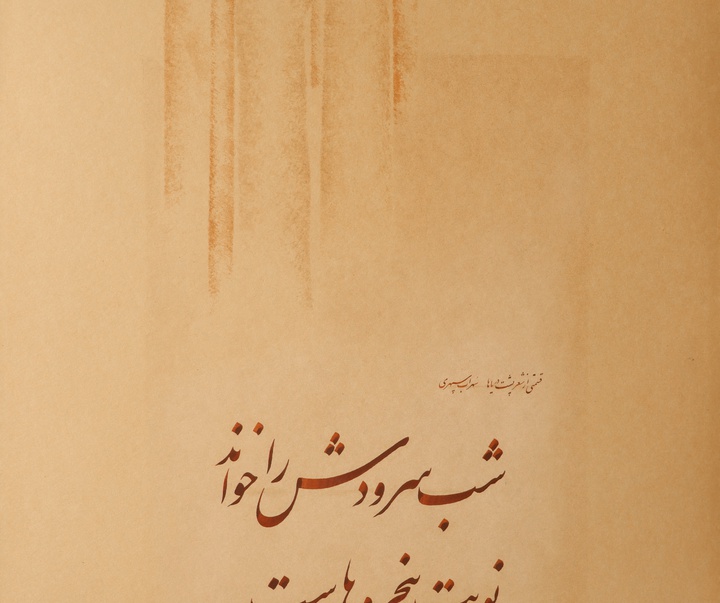 قسمتی از شعر پشت دریاها سهراب سپهری
شب سرودش را خواند
نوبت پنجره هاست